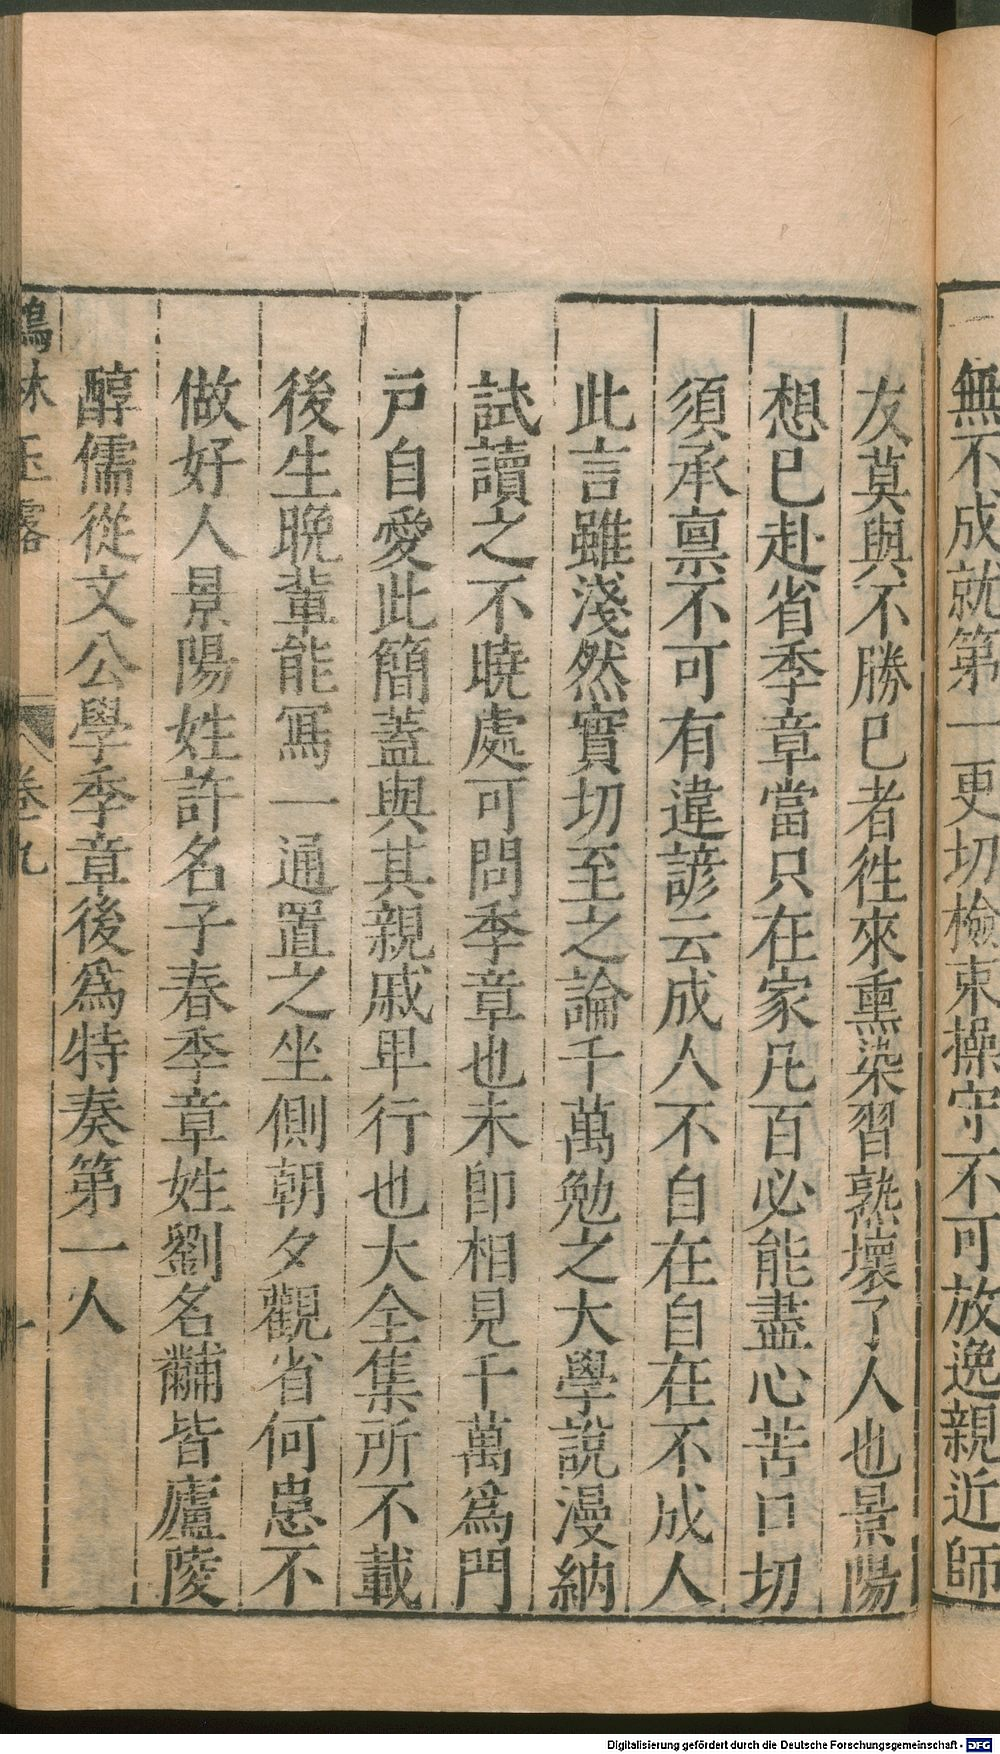 無不成就第一更切檢束操守不可放逸親近師
友莫與不勝已者徃來熏染習熟壞了人也景陽
想已赴省季章當只在家凡百必能盡心苦口切
須承稟不可有違諺云成人不自在自在不成人
此言雖淺然實切至之論千萬勉之大學說漫納
試讀之不曉處可問季章也未卽相見千萬爲門
戶自愛此簡蓋與其親戚卑行也大全集所不載
後生晚輩能冩一通置之坐側朝夕觀省何患不
做好人景陽姓許名子春季章姓劉名黼皆廬陵
醇儒從文公學季章後爲特奏第一人
鶴林玉露
卷九
Digitalisierung gefördert durch die Deutsche Forschungsgemeinschaft - DFG